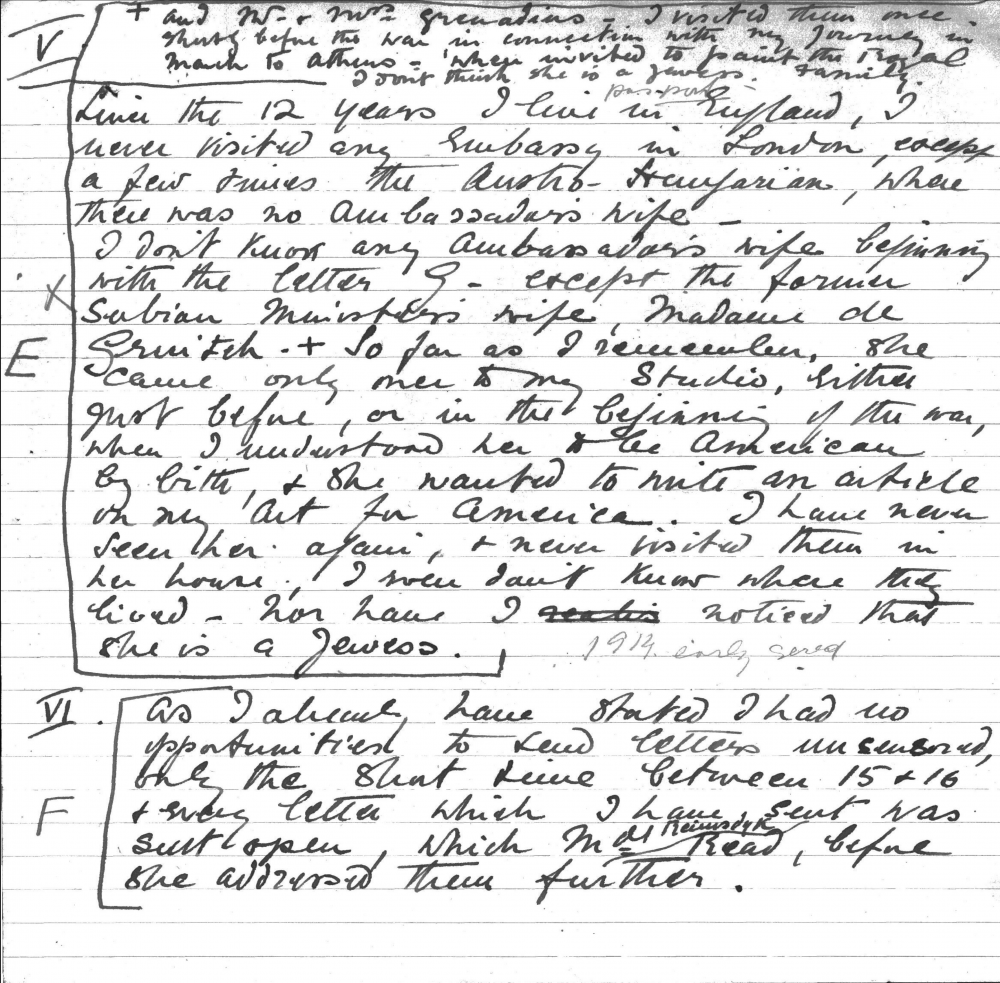 + and Mr. & Mrs. Grenadius - I visited them once
shortly before the war in connection with my journey in
V
March to Athens - when invited to paint the Royal
I don't think she is a Jewess. Family.
passport
Since the 12 years I live in England, I
never visited any Embassy in London, except
a few times the Austro-Hungarian, where
there was no Ambassador's wife -
I don't know any Ambassador's wife beginning
with the letter G - except the former
X Serbian Minister's wife, Madame de
E Gruitch. + So far as I remember, she
came only once to my Studio, either
just before, or in the beginning of the war,
when I understood her to be American
by birth, & she wanted to write an article
on my Art for America. I have never
seen her again, & never visited them in
her house, I even don't know where they
lived - Nor have I noticed that
she is a Jewess. 1914 early
VI. As I already have stated I had no
opportunities to send letters uncensored,
only the short time between 15 & 16
F & every letter which I have sent was
sent open, which Mde Reimsdyk Read, before
she addressed them further.